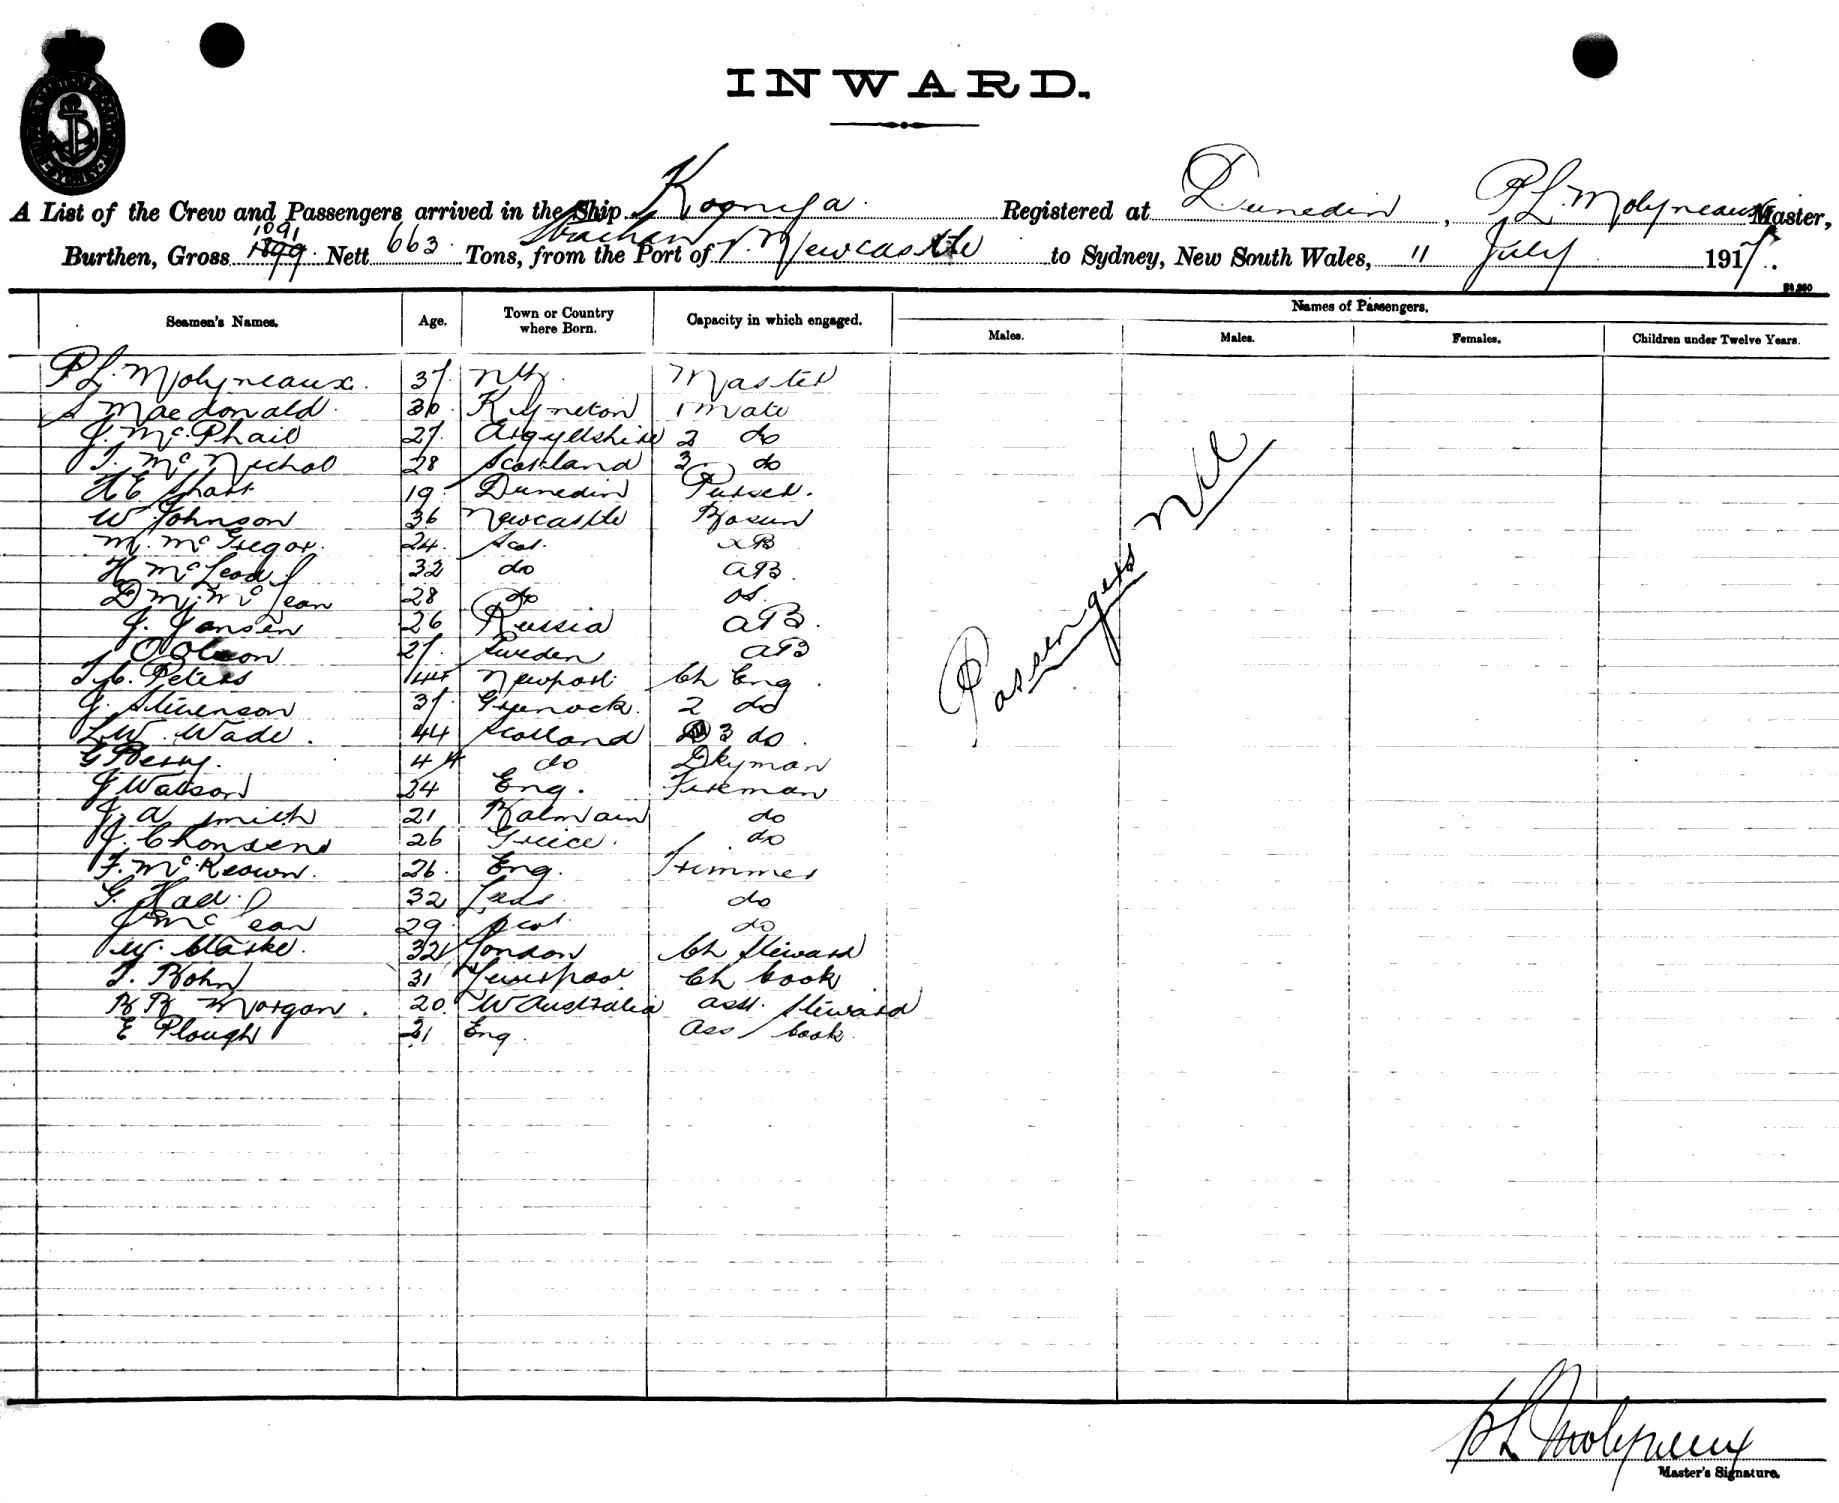 INWARD.
A List of the Crew and Passengers arrived in the Ship Koonya. Registered at Dunedin, P L Molyneaux Master,
Burthen, Gross 1091 Nett 663. Tons, from the Port of Strachan v. Newcastle to Sydney, New South Wales, 11 July 1917.
Names of Passengers.
Seamen's Names. Age. Town or Country where Born. Capacity in which engaged. Males. Males. Females. Children under Twelve Years.
P L. Molyneaux. 37 Master
S Macdonald. 30 Kyneton 1 Mate
J. McPhail 27 Argyllshire 2 do
T. McNichol 28 Scotland 3 do
H E Short 19 Dunedin Purser.
W Johnson 36 Newcastle Bosun
M. McGregor. 24 Scot. AB
H McLeod 32 do AB.
D M. McLean 28 do os.
J. Jansen 26 Russia AB.
O Olson 27 Sweden AB
T. C. Peters 44 Newport Ch Eng.
J. Stevenson 37 Greenock. 2 do
L W. Wade. 44 Scotland 3 do.
G Perry. 44 do Dkyman
J Watson 24 Eng. Fireman
J. A Smith 21 Balmain do
J. Chonsend 26 Greece. do
F. McKeown. 26. Eng. Trimmer
G. Hall. 32 Leeds. do
J McLean 29 Scot. do
W. Clarke. 32 London Ch Steward
T. Bohn 31 Liverpool Ch Cook
R R Morgan. 20. W Australia asst. Steward
E Plough 21 Eng. Ass Cook
Passengers Nil
P L Molyneux
Master's Signature.